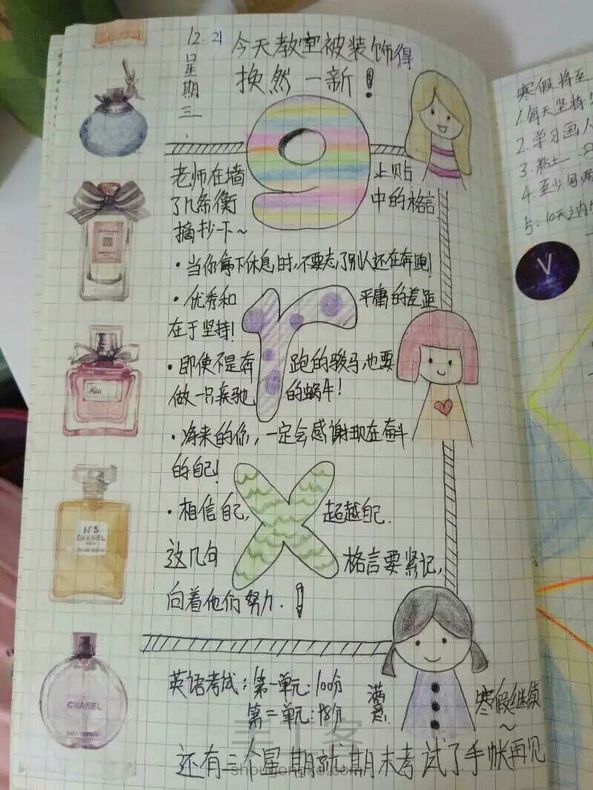 12.21
星期三
今天教室被装饰得
焕然一新！
老师在墙 9 上贴
了几条衡 中的格言
摘抄下~
·当你停下休息时,不要忘了别人还在奔跑
·优秀和 平庸的差距
在于坚持!
r
·即使不是奔 跑的骏马,也要
做一只奔驰 的蜗牛!
·将来的你,一定会感谢现在奋斗
的自己!
·相信自己, x 超越自己.
这几句 格言要紧记,
向着他们努力.!
英语考试:第一单元:100分 满意
第二单元:98分
寒假继续
~
还有三个星期就期末考试了手帐再见
N°5
CHANEL
CHANEL
寒假将至
1.每天坚持
2.学习画人
3.粘土
4.至少每两
5.10天之内
V